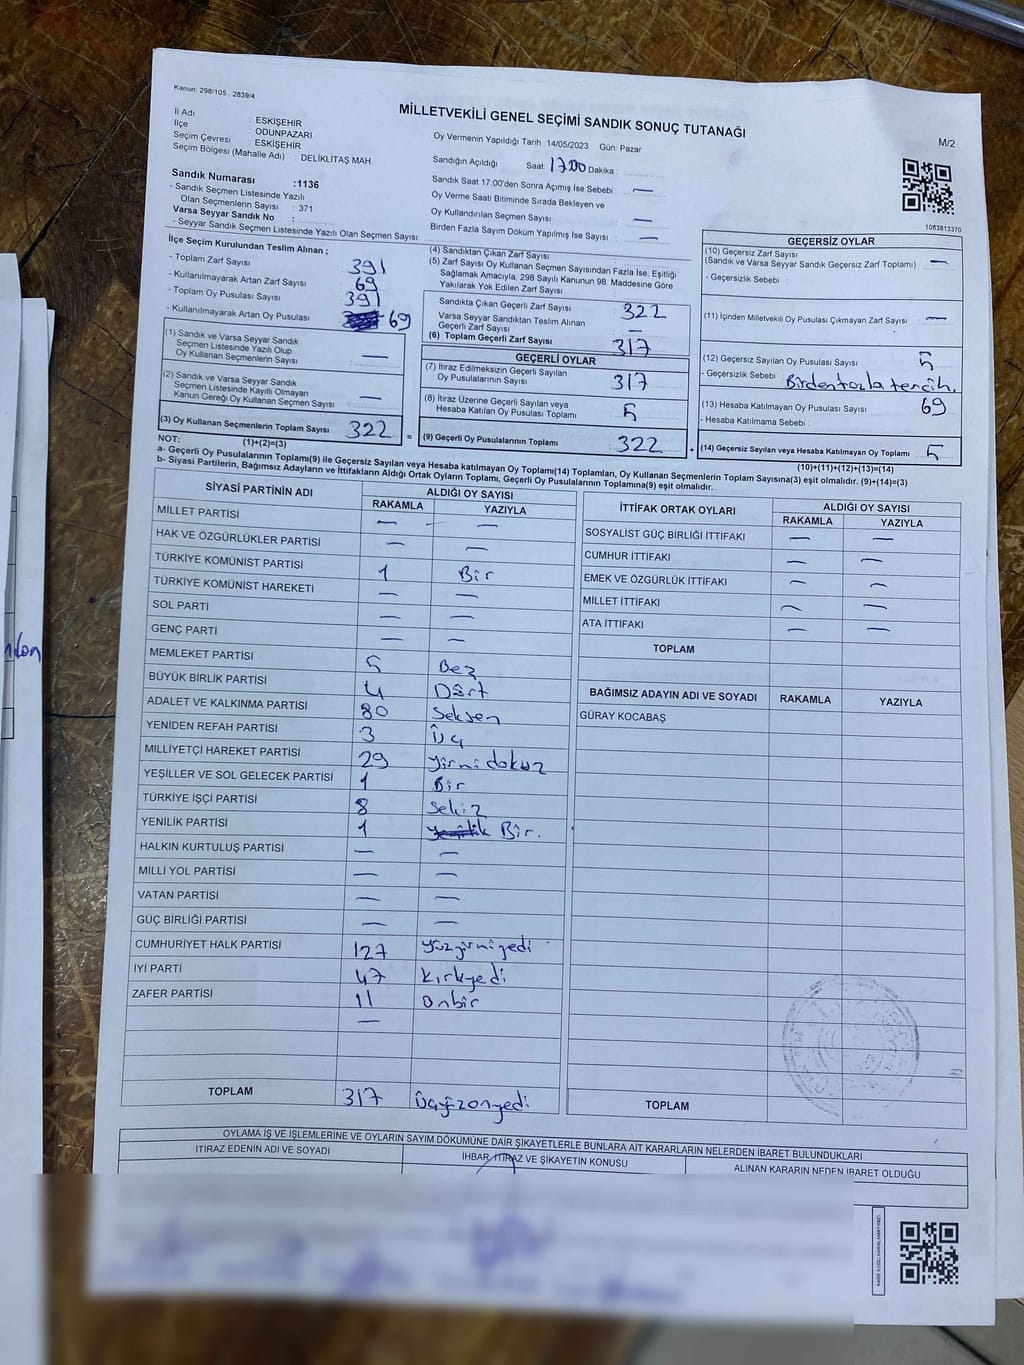 Kanun: 298/105 , 2839/4
MİLLETVEKİLİ GENEL SEÇİMİ SANDIK SONUÇ TUTANAĞI
M/2
İl Adı : ESKİŞEHİR
İlçe : ODUNPAZARI
Seçim Çevresi : ESKİŞEHİR
Seçim Bölgesi (Mahalle Adı) : DELİKLİTAŞ MAH.
Sandık Numarası :1136
- Sandık Seçmen Listesinde Yazılı
Olan Seçmenlerin Sayısı : 371
Varsa Seyyar Sandık No :
- Seyyar Sandık Seçmen Listesinde Yazılı Olan Seçmen Sayısı:
Oy Vermenin Yapıldığı Tarih : 14/05/2023 Gün: Pazar
Sandığın Açıldığı Saat: 17.00 Dakika :
Sandık Saat 17:00'den Sonra Açımış İse Sebebi : —
Oy Verme Saati Bitiminde Sırada Bekleyen ve
Oy Kullandırılan Seçmen Sayısı : —
Birden Fazla Sayım Döküm Yapılmış İse Sayısı : —
1083813370
İlçe Seçim Kurulundan Teslim Alınan ;
- Toplam Zarf Sayısı : 391
- Kullanılmayarak Artan Zarf Sayısı : 69
- Toplam Oy Pusulası Sayısı : 391
- Kullanılmayarak Artan Oy Pusulası : 69
(1) Sandık ve Varsa Seyyar Sandık
Seçmen Listesinde Yazılı Olup
Oy Kullanan Seçmenlerin Sayısı : —
(2) Sandık ve Varsa Seyyar Sandık
Seçmen Listesinde Kayıtlı Olmayan
Kanun Gereği Oy Kullanan Seçmen Sayısı : —
(3) Oy Kullanan Seçmenlerin Toplam Sayısı : 322
(1)+(2)=(3)
(4) Sandıktan Çıkan Zarf Sayısı :
(5) Zarf Sayısı Oy Kullanan Seçmen Sayısından Fazla İse, Eşitliği
Sağlamak Amacıyla, 298 Sayılı Kanunun 98. Maddesine Göre
Yakılarak Yok Edilen Zarf Sayısı :
Sandıkta Çıkan Geçerli Zarf Sayısı : 322
Varsa Seyyar Sandıktan Teslim Alınan
Geçerli Zarf Sayısı : —
(6) Toplam Geçerli Zarf Sayısı : 317
GEÇERLİ OYLAR
(7) İtiraz Edilmeksizin Geçerli Sayılan
Oy Pusulalarının Sayısı : 317
(8) İtiraz Üzerine Geçerli Sayılan veya
Hesaba Katılan Oy Pusulası Toplamı : 5
= (9) Geçerli Oy Pusulalarının Toplamı : 322
GEÇERSİZ OYLAR
(10) Geçersiz Zarf Sayısı : —
(Sandık ve Varsa Seyyar Sandık Geçersiz Zarf Toplamı)
- Geçersizlik Sebebi :
(11) İçinden Milletvekili Oy Pusulası Çıkmayan Zarf Sayısı : —
(12) Geçersiz Sayılan Oy Pusulası Sayısı : 5
- Geçersizlik Sebebi : Birden fazla tercih.
(13) Hesaba Katılmayan Oy Pusulası Sayısı : 69
- Hesaba Katılmama Sebebi :
+ (14) Geçersiz Sayılan veya Hesaba Katılmayan Oy Toplamı : 5
(10)+(11)+(12)+(13)=(14)
NOT:
a- Geçerli Oy Pusulalarının Toplamı(9) ile Geçersiz Sayılan veya Hesaba katılmayan Oy Toplamı(14) Toplamları, Oy Kullanan Seçmenlerin Toplam Sayısına(3) eşit olmalıdır. (9)+(14)=(3)
b- Siyasi Partilerin, Bağımsız Adayların ve İttifakların Aldığı Oyların Toplamı, Geçerli Oy Pusulalarının Toplamına(9) eşit olmalıdır.
SİYASİ PARTİNİN ADI ALDIĞI OY SAYISI
RAKAMLA YAZIYLA
MİLLET PARTİSİ — —
HAK VE ÖZGÜRLÜKLER PARTİSİ — —
TÜRKİYE KOMÜNİST PARTİSİ 1 Bir
TÜRKİYE KOMÜNİST HAREKETİ — —
SOL PARTİ — —
GENÇ PARTİ — —
MEMLEKET PARTİSİ 5 Beş
BÜYÜK BİRLİK PARTİSİ 4 Dört
ADALET VE KALKINMA PARTİSİ 80 Seksen
YENİDEN REFAH PARTİSİ 3 Üç
MİLLİYETÇİ HAREKET PARTİSİ 29 yirmi dokuz
YEŞİLLER VE SOL GELECEK PARTİSİ 1 Bir
TÜRKİYE İŞÇİ PARTİSİ 8 Sekiz
YENİLİK PARTİSİ 1 Bir.
HALKIN KURTULUŞ PARTİSİ — —
MİLLİ YOL PARTİSİ — —
VATAN PARTİSİ — —
GÜÇ BİRLİĞİ PARTİSİ — —
CUMHURİYET HALK PARTİSİ 127 yüzyirmiyedi
İYİ PARTİ 47 kırkyedi
ZAFER PARTİSİ 11 onbir
—
TOPLAM 317 üçyüzonyedi
İTTİFAK ORTAK OYLARI ALDIĞI OY SAYISI
RAKAMLA YAZIYLA
SOSYALİST GÜÇ BİRLİĞİ İTTİFAKI — —
CUMHUR İTTİFAKI — —
EMEK VE ÖZGÜRLÜK İTTİFAKI — —
MİLLET İTTİFAKI — —
ATA İTTİFAKI — —
TOPLAM
BAĞIMSIZ ADAYIN ADI VE SOYADI RAKAMLA YAZIYLA
GÜRAY KOCABAŞ
TOPLAM
OYLAMA İŞ VE İŞLEMLERİNE VE OYLARIN SAYIM DÖKÜMÜNE DAİR ŞİKAYETLERLE BUNLARA AİT KARARLARIN NELERDEN İBARET BULUNDUKLARI
İTİRAZ EDENİN ADI VE SOYADI İHBAR, İTİRAZ VE ŞİKAYETİN KONUSU ALINAN KARARIN NEDEN İBARET OLDUĞU